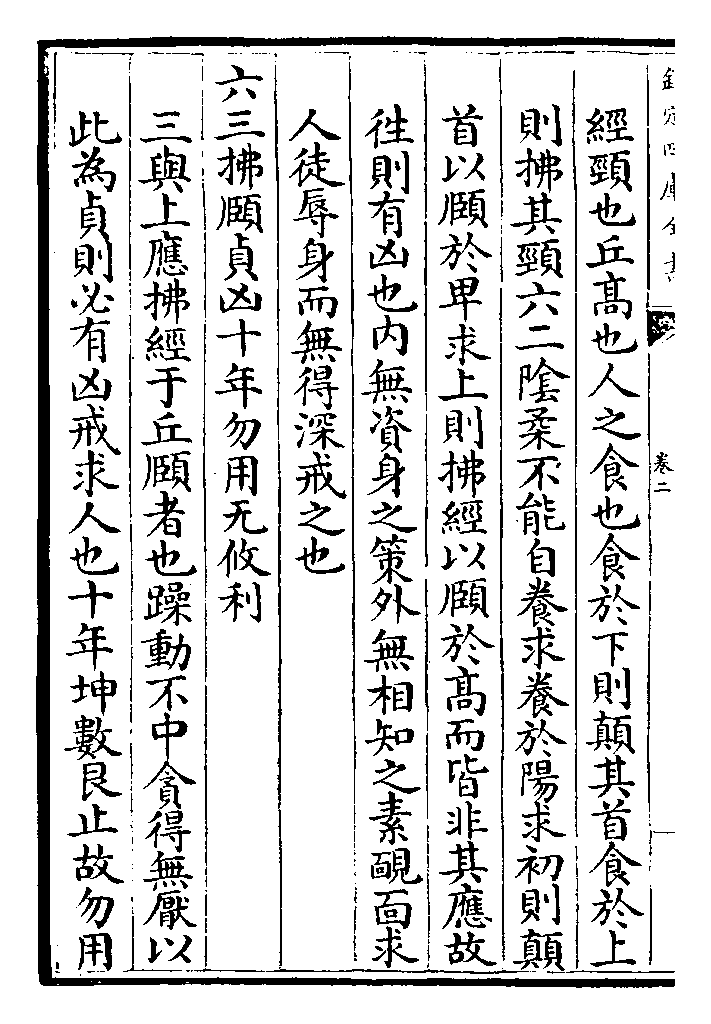 欽定四庫全書
卷二
經頸也丘髙也人之食也食於下則顛其首食於上
則拂其頸六二隂柔不能自養求養於陽求初則顛
首以頤於卑求上則拂經以頤於髙而皆非其應故
徃則有凶也内無資身之策外無相知之素靦面求
人徒辱身而無得深戒之也
六三拂頤貞凶十年勿用无攸利
三與上應拂經于丘頤者也躁動不中貪得無厭以
此為貞則必有凶戒求人也十年坤數艮止故勿用